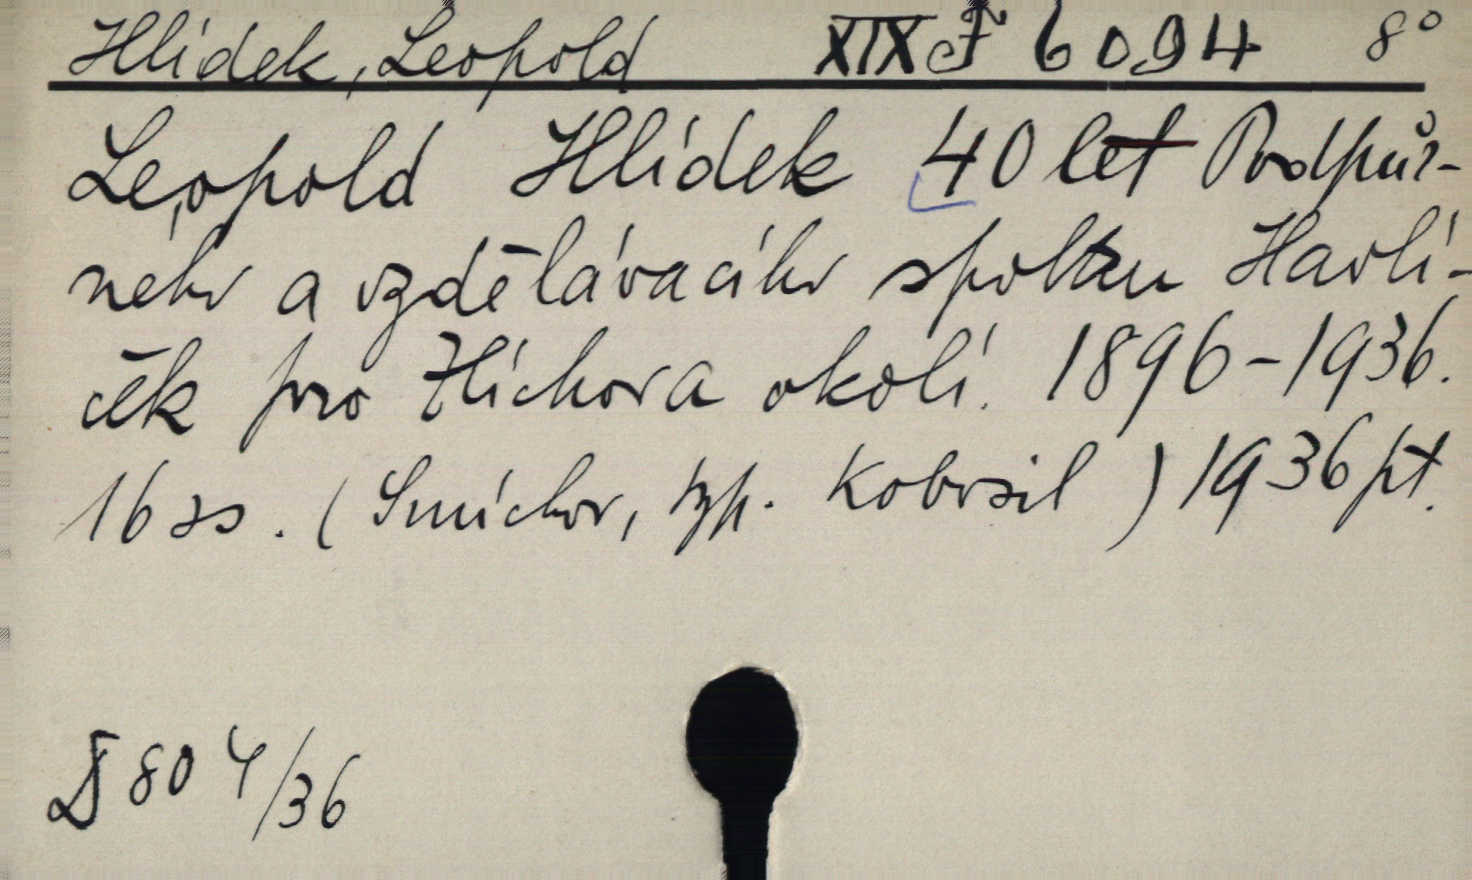 Hlídek, Leopold XIX F 6094 8°
Leopold Hlídek 40 let Podpůr-
ného a vzdělávacího spolku Havlí-
ček pro Zlíchov a okolí. 1896-1936.
16 ss. (Smíchov, typ. Kobosil) 1936 pt.
D 804/36